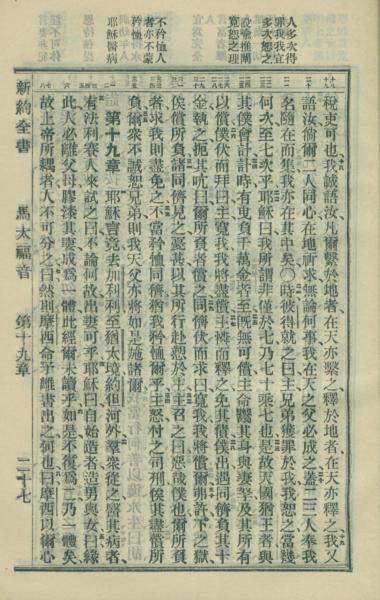 人多次得
罪我我宜
多次恕之
設諭惟關
寬恕之理
不矜恤人
者亦不蒙
矜恤
耶穌醫病
稅吏可也我誠語汝凡爾繫於地者在天亦繫之釋於地者在天亦釋之我又
語汝倘爾二人同心在地祈求無論何事我在天之父必成之蓋二三人奉我
名隨在而集我亦在其中矣〇時彼得就之曰主兄弟獲罪於我我恕之當幾
何次至七次乎耶穌曰我所謂非僅於七乃七十乘七也是故天國猶王者與
其僕會計計時有曳負千萬金者至既無可償主命鬻其身與妻孥及其所有
以償僕伏而拜曰主寬我我將盡償主憐而釋之免其債僕出遇同儕負其十
金執之扼其吭曰爾所負者償之同儕伏而求曰寬我我將償爾弗許下之獄
俟償所負諸同儕見之憂甚以其所行赴愬於主主召之曰惡哉僕也爾所負
者求我則盡免之不當矜恤同儕猶我矜恤爾乎主怒付之司刑俟其盡償所
負爾衆不誠恕兄弟則我天父亦將如是施諸爾
第十九章 耶穌言竟去加利利至猶太境約但河外羣衆從之醫其病者
有法利賽人來試之曰不論何故出妻可乎耶穌曰自始造者造男與女曰緣
此人必離父母膠漆其妻成爲一體此經爾未讀乎如是不復爲二乃一體矣
故上帝所耦者人不可分之曰然則摩西命予離書出之何也曰摩西以爾心
新約全書 馬太福音 第十九章 二十七